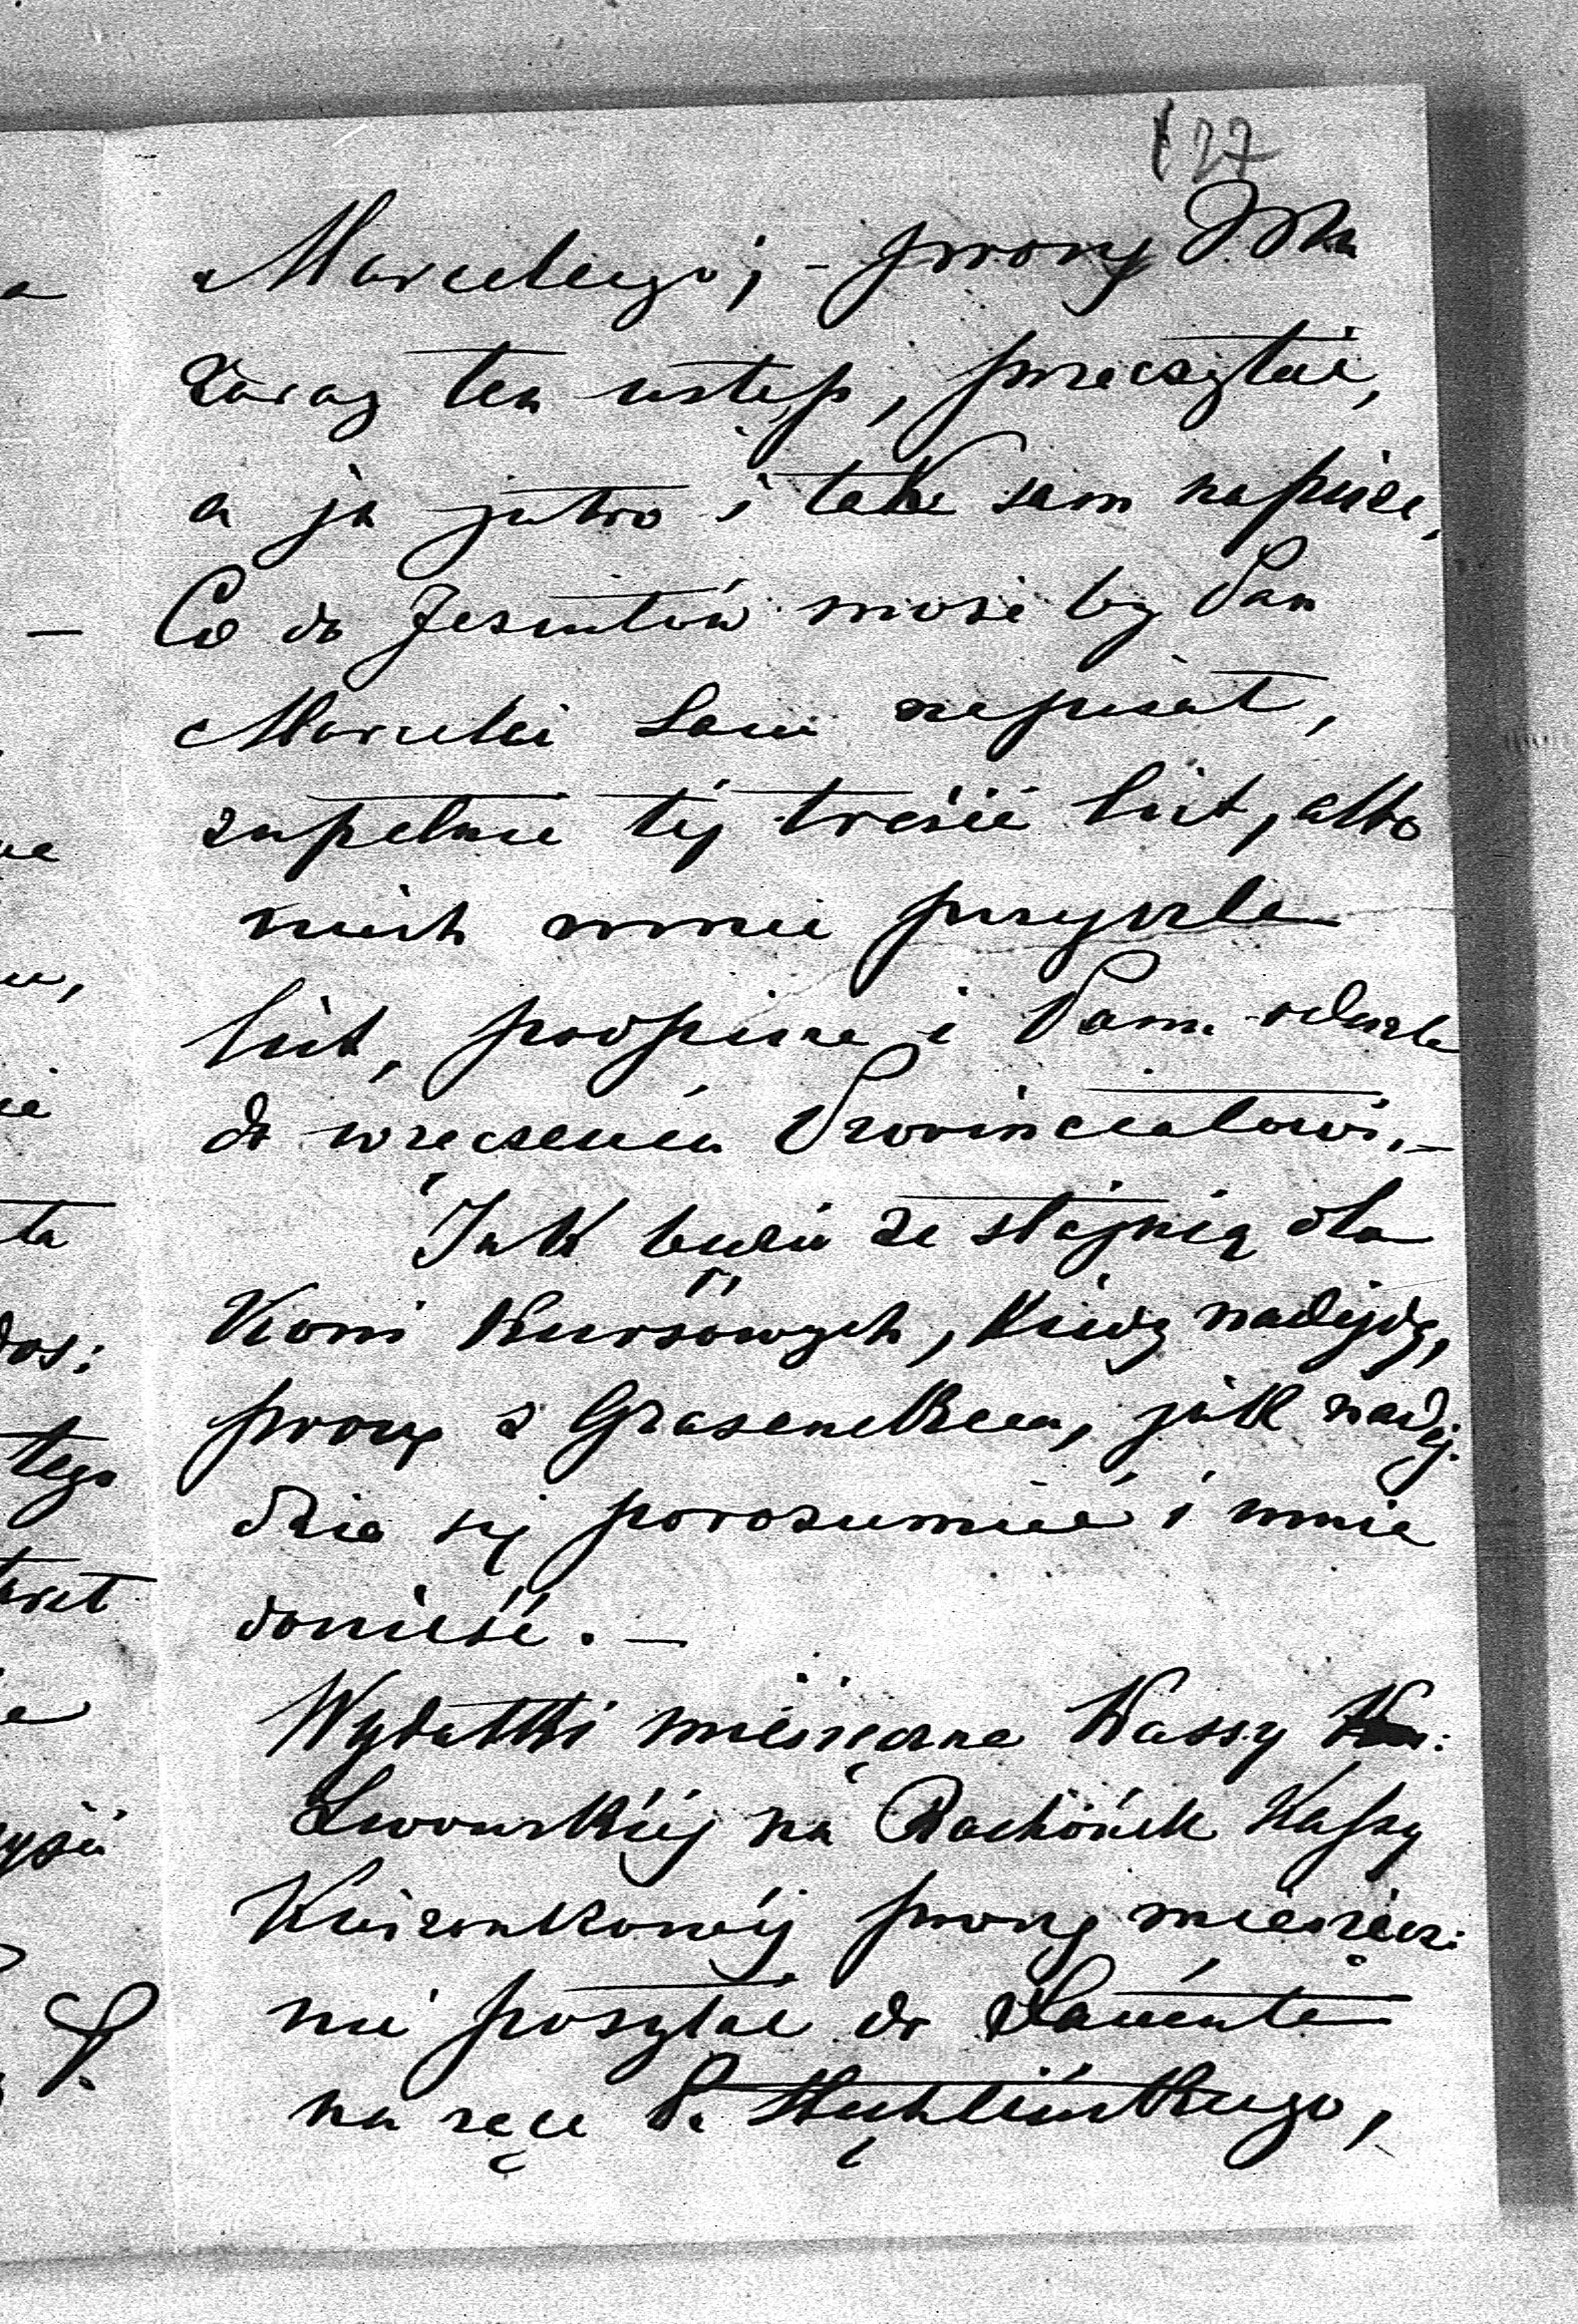 127
Marcelego; - proszę Mu
zaraz ten ustęp, przeczytać,
a ja jutro i tak sam napiszę.
Co do Jezuitów może by Pan
Marceli sam napisał,
zupełnie tej treści list, albo
niech mnie przyszle
list, podpiszę i Panu odeszle
do wręczenia Prowincialowi. —
Jak będzie ze stajnią dla
Koni Kursowych, kiedy nadejdą,
proszę z Grasemekiem, jak nadej-
dzie się porozumieć i mnie
donieść. —
Wydatki miesięczne Kassy
Lwowskiej na Rachónek Kassy
Krzyszowej proszę miesięcz:
nie posyłać do Łańcuta
na ręce P.